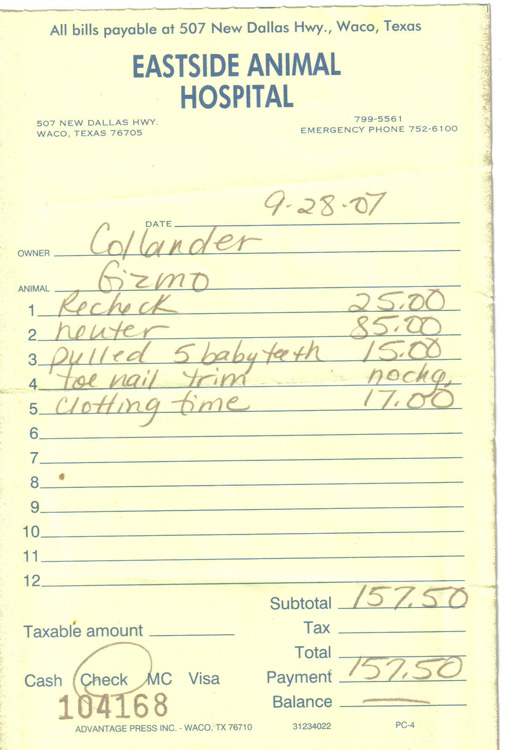 All bills payable at 507 New Dallas Hwy., Waco, Texas
EASTSIDE ANIMAL
HOSPITAL
507 NEW DALLAS HWY.
WACO, TEXAS 76705
799-5561
EMERGENCY PHONE 752-6100
DATE 9-28-07
OWNER Collander
ANIMAL Gizmo
1 Recheck 25.00
2 neuter 85.00
3 pulled 5 baby teeth 15.00
4 toe nail trim nochg.
5 clotting time 17.00
6
7
8
9
10
11
12
Subtotal 157.50
Taxable amount
Tax
Total
Cash Check MC Visa
Payment 157.50
104168
Balance —
ADVANTAGE PRESS INC. - WACO, TX 76710 31234022 PC-4